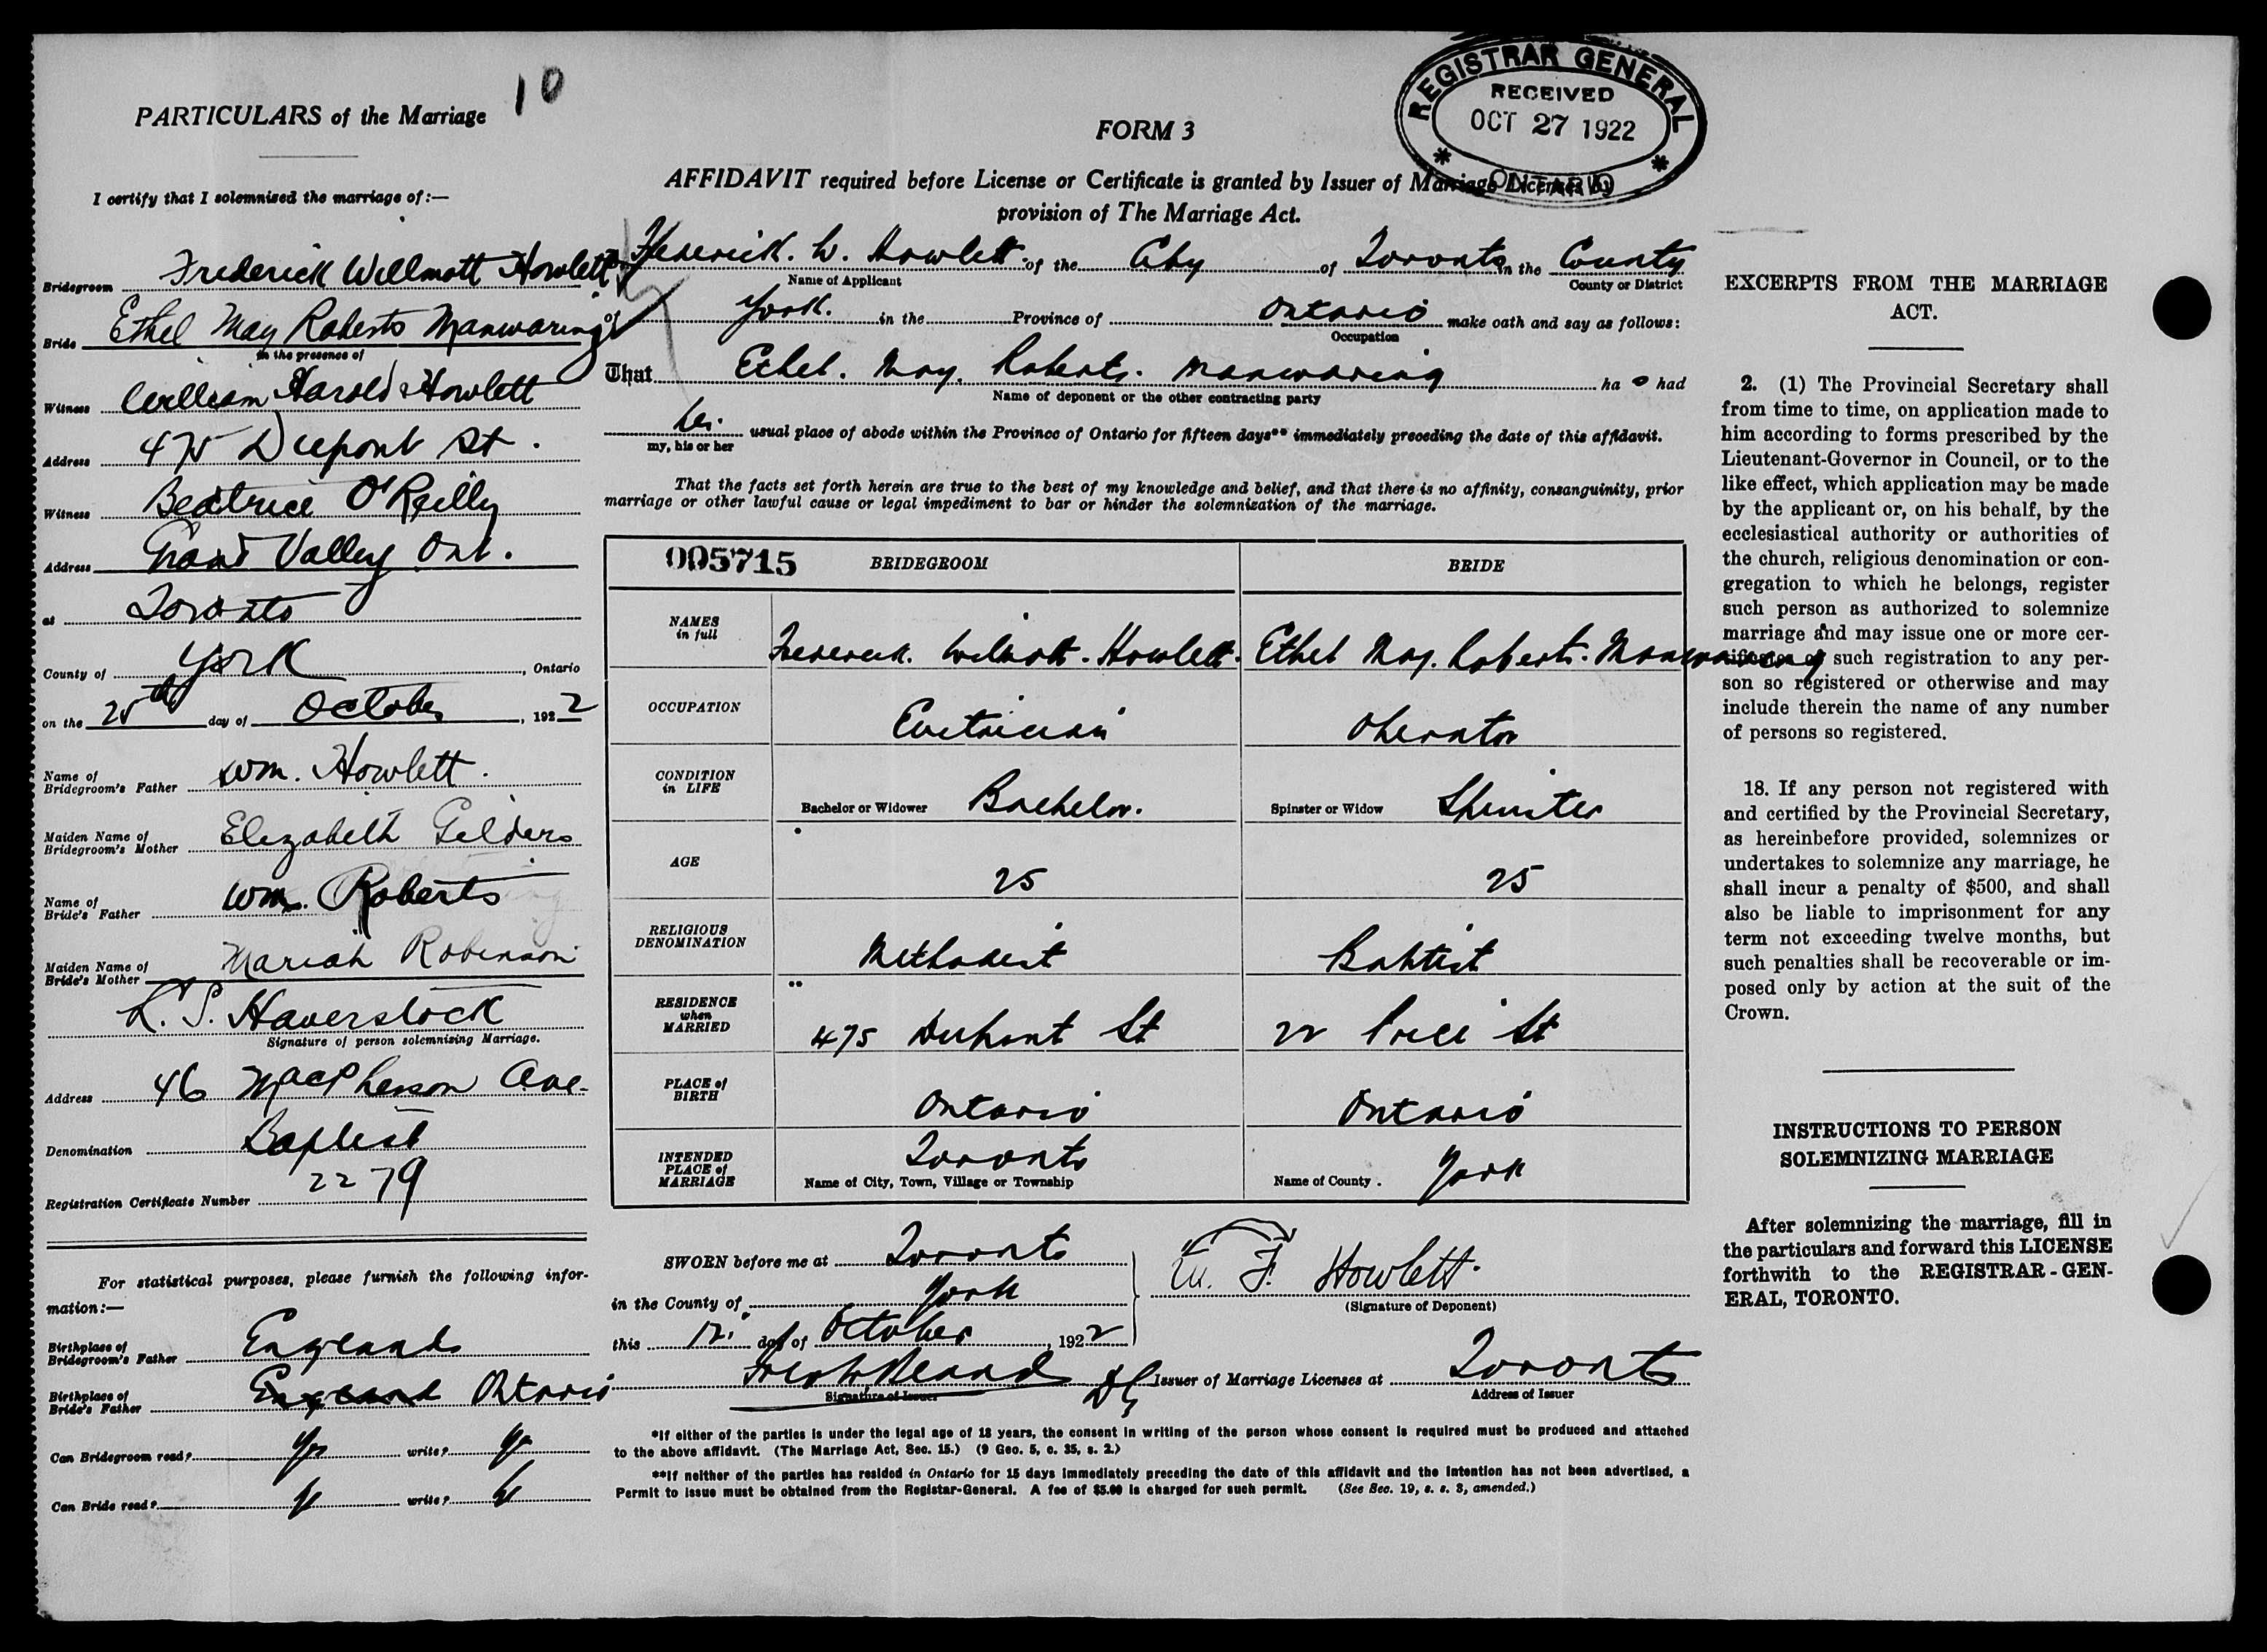 PARTICULARS of the Marriage
10
I certify that I solemnised the marriage of:—
Bridegroom Frederick Willmott Howlett
Bride Ethel May Roberts Manwaring
in the presence of
Witness William Harold Howlett
Address 475 Dupont St.
Witness Beatrice O'Reilly
Address Grand Valley Ont.
at Toronto
County of York, Ontario
on the 25th day of October, 1922
Name of Bridegroom's Father Wm. Howlett.
Maiden Name of Bridegroom's Mother Elizabeth Gilders
Name of Bride's Father Wm. Roberts
Maiden Name of Bride's Mother Mariah Robinson
R. S. Haverstock
Signature of person solemnising Marriage.
Address 46 MacPherson Ave.
Denomination Baptist
Registration Certificate Number 2279
For statistical purposes, please furnish the following infor-
mation:—
Birthplace of Bridegroom's Father England
Birthplace of Bride's Father England Ontario
Can Bridegroom read? Yes write? Yes
Can Bride read? Yes write? Yes
REGISTRAR GENERAL
RECEIVED
OCT 27 1922
ONTARIO
FORM 3
AFFIDAVIT required before License or Certificate is granted by Issuer of Marriage Licenses by
provision of The Marriage Act.
I Frederick. W. Howlett of the City of Toronto in the County
Name of Applicant County or District
of York. in the Province of Ontario make oath and say as follows:
Occupation
That Ethel. May. Roberts. Manwaring has had
Name of deponent or the other contracting party
her usual place of abode within the Province of Ontario for fifteen days** immediately preceding the date of this affidavit.
my, his or her
That the facts set forth herein are true to the best of my knowledge and belief, and that there is no affinity, consanguinity, prior
marriage or other lawful cause or legal impediment to bar or hinder the solemnization of the marriage.
005715 BRIDEGROOM BRIDE
NAMES in full Frederick. Wilmott. Howlett. Ethel May. Roberts. Manwaring
OCCUPATION Electrician Operator
CONDITION in LIFE Bachelor or Widower Bachelor. Spinster or Widow Spinster
AGE 25 25
RELIGIOUS DENOMINATION Methodist Baptist
RESIDENCE when MARRIED 475 Dupont St 22 Price St
PLACE of BIRTH Ontario Ontario
INTENDED PLACE of MARRIAGE Toronto York
Name of City, Town, Village or Township Name of County.
SWORN before me at Toronto
in the County of York
this 12. day of October, 1922
W. F. Howlett.
(Signature of Deponent)
Signature of Issuer
Issuer of Marriage Licenses at Toronto
Address of Issuer
*If either of the parties is under the legal age of 18 years, the consent in writing of the person whose consent is required must be produced and attached
to the above affidavit. (The Marriage Act, Sec. 15.) (9 Geo. 5, c. 35, s. 2.)
**If neither of the parties has resided in Ontario for 15 days immediately preceding the date of this affidavit and the intention has not been advertised, a
Permit to issue must be obtained from the Registar-General. A fee of $5.00 is charged for such permit. (See Sec. 19, s. s. 3, amended.)
EXCERPTS FROM THE MARRIAGE
ACT.
2. (1) The Provincial Secretary shall
from time to time, on application made to
him according to forms prescribed by the
Lieutenant-Governor in Council, or to the
like effect, which application may be made
by the applicant or, on his behalf, by the
ecclesiastical authority or authorities of
the church, religious denomination or con-
gregation to which he belongs, register
such person as authorized to solemnize
marriage and may issue one or more cer-
tificates of such registration to any per-
son so registered or otherwise and may
include therein the name of any number
of persons so registered.
18. If any person not registered with
and certified by the Provincial Secretary,
as hereinbefore provided, solemnizes or
undertakes to solemnize any marriage, he
shall incur a penalty of $500, and shall
also be liable to imprisonment for any
term not exceeding twelve months, but
such penalties shall be recoverable or im-
posed only by action at the suit of the
Crown.
INSTRUCTIONS TO PERSON
SOLEMNIZING MARRIAGE
After solemnizing the marriage, fill in
the particulars and forward this LICENSE
forthwith to the REGISTRAR-GEN-
ERAL, TORONTO.